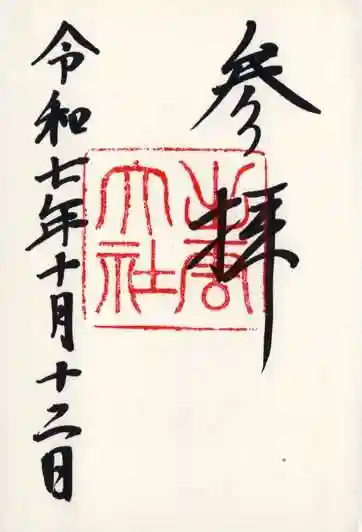 参拝
出雲
大社
令和七年十月十二日